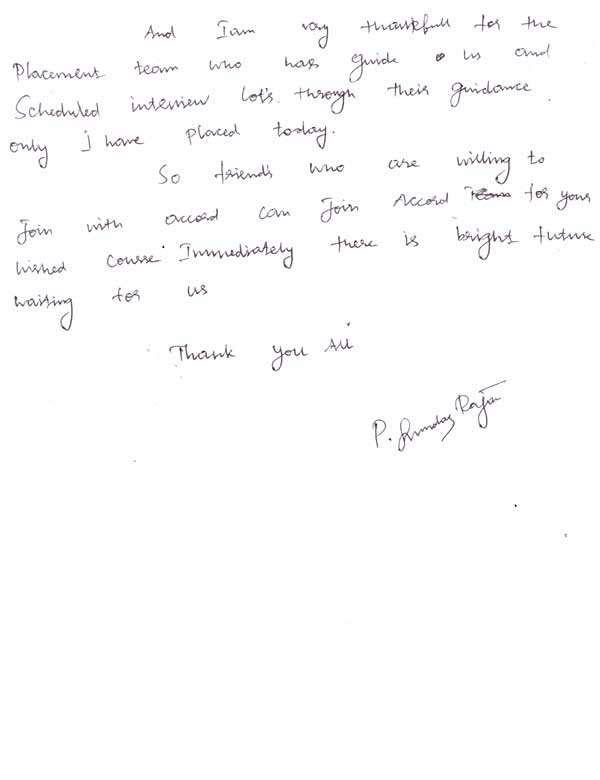 And I am very thankfull for the
Placement team who has guide us and
Scheduled interview lots. through their guidance
only I have placed today.
So friends who are willing to
Join with accord can Join Accord Team for your
wished course Immediately there is bright future
waiting for us
Thank you All
P. Sundar Rajan